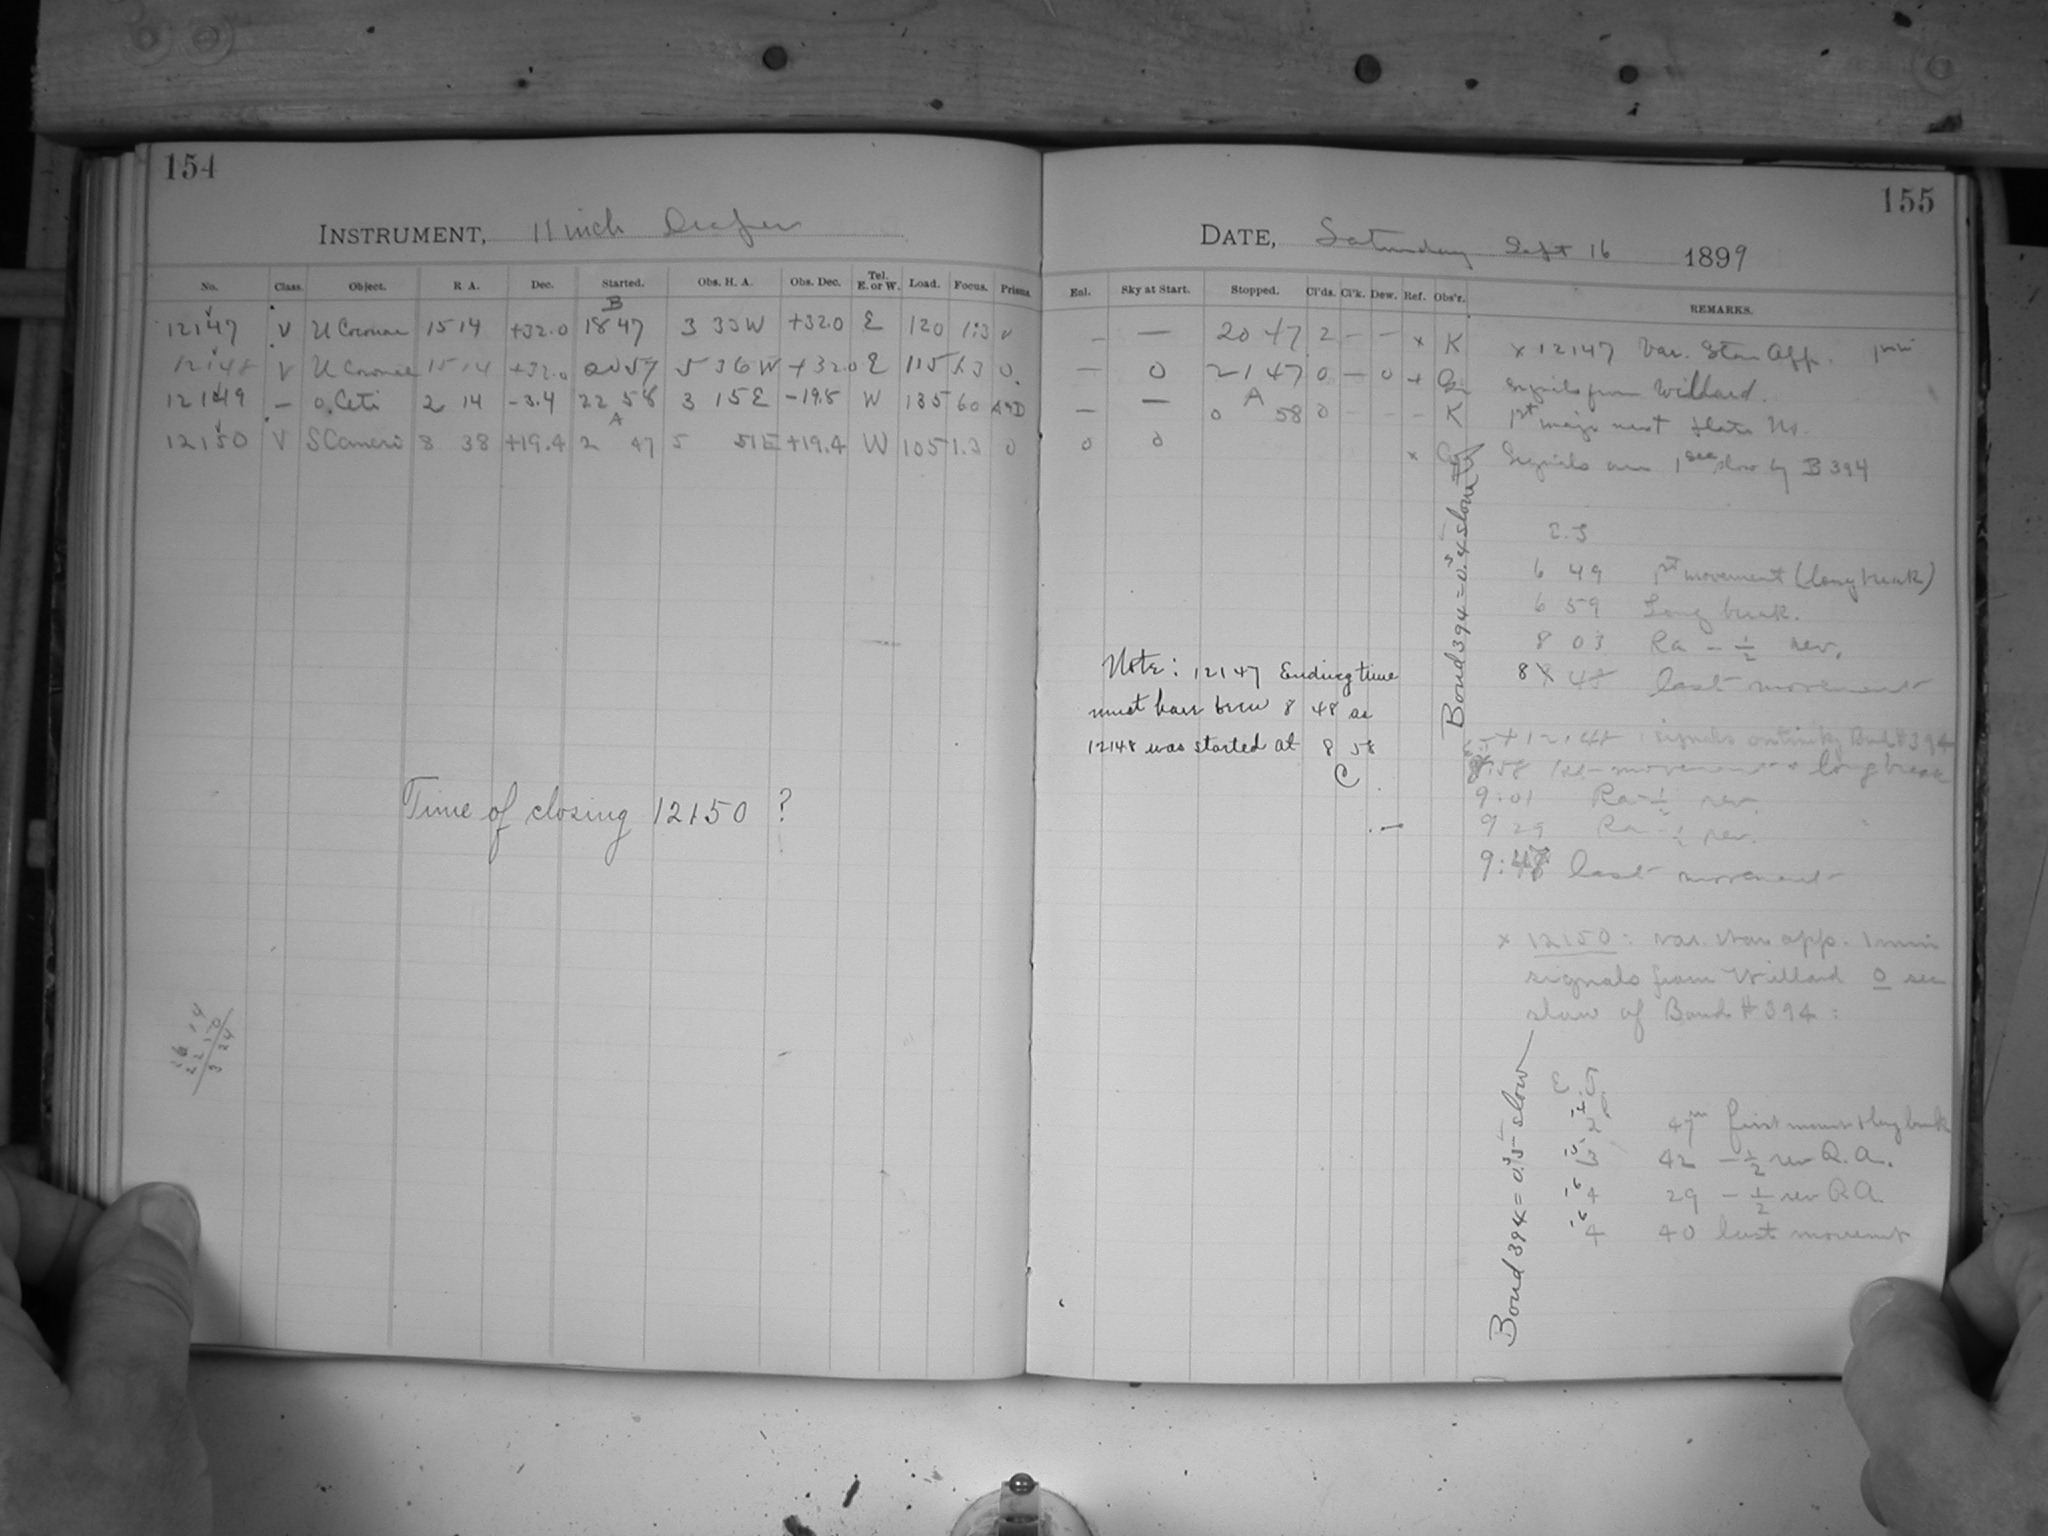 154
INSTRUMENT, 11 inch Draper
No. Class. Object. R A. Dec. Started. Obs. H. A. Obs. Dec. Tel. E. or W. Load. Focus. Prisms.
B
12147 V U Coronae 15 14 +32.0 18 47 3 33 W +32.0 E 120 1.3 0
12148 V U Coronae 15 14 +32.0 20 57 5 36 W +32.0 E 115 1.3 0
12149 — o Ceti 2 14 -3.4 22 58 3 15 E -19.8 W 135 60
A
12150 V S Cancri 8 38 +19.4 2 47 5 51 E +19.4 W 105 1.3 0
Time of closing 12150 ?
16 14
22 10
3 24
155
DATE, Saturday Sept 16 1899
Enl. Sky at Start. Stopped. Cl'ds. Cl'k. Dew. Ref. Obs'r. REMARKS.
— — 20 47 2 — — x K x 12147 Var. Star App. 1 min
— 0 21 47 0 — 0 x signals from Willard.
A
— — 0 58 0 - - - K 1st major next plate No.
0 0 x Signals are 1 sec slow by B 394
Bond 394 = 0.s4 slow
E. S
6 49 1st movement (long break)
6 59 Long break.
8 03 Ra — 1/2 rev.
8 48 last movement
Note: 12147 Ending time
must have been 8 48 as
12148 was started at 8 58
C
x 12148 signals Bond # 394
8:58 1st movement + long break
9:01 Ra - 1/2 rev.
9 29 Ra - 1/2 rev.
9:48 last movement
x 12150: var. star app. 1 min
signals from Willard 0 sec
slow of Bond # 394:
Bond 394 = 0.s5 slow
E. T.
2 47m first movt + long break
3 42 — 1/2 rev R.A.
4 29 — 1/2 rev R.A.
4 40 last movement